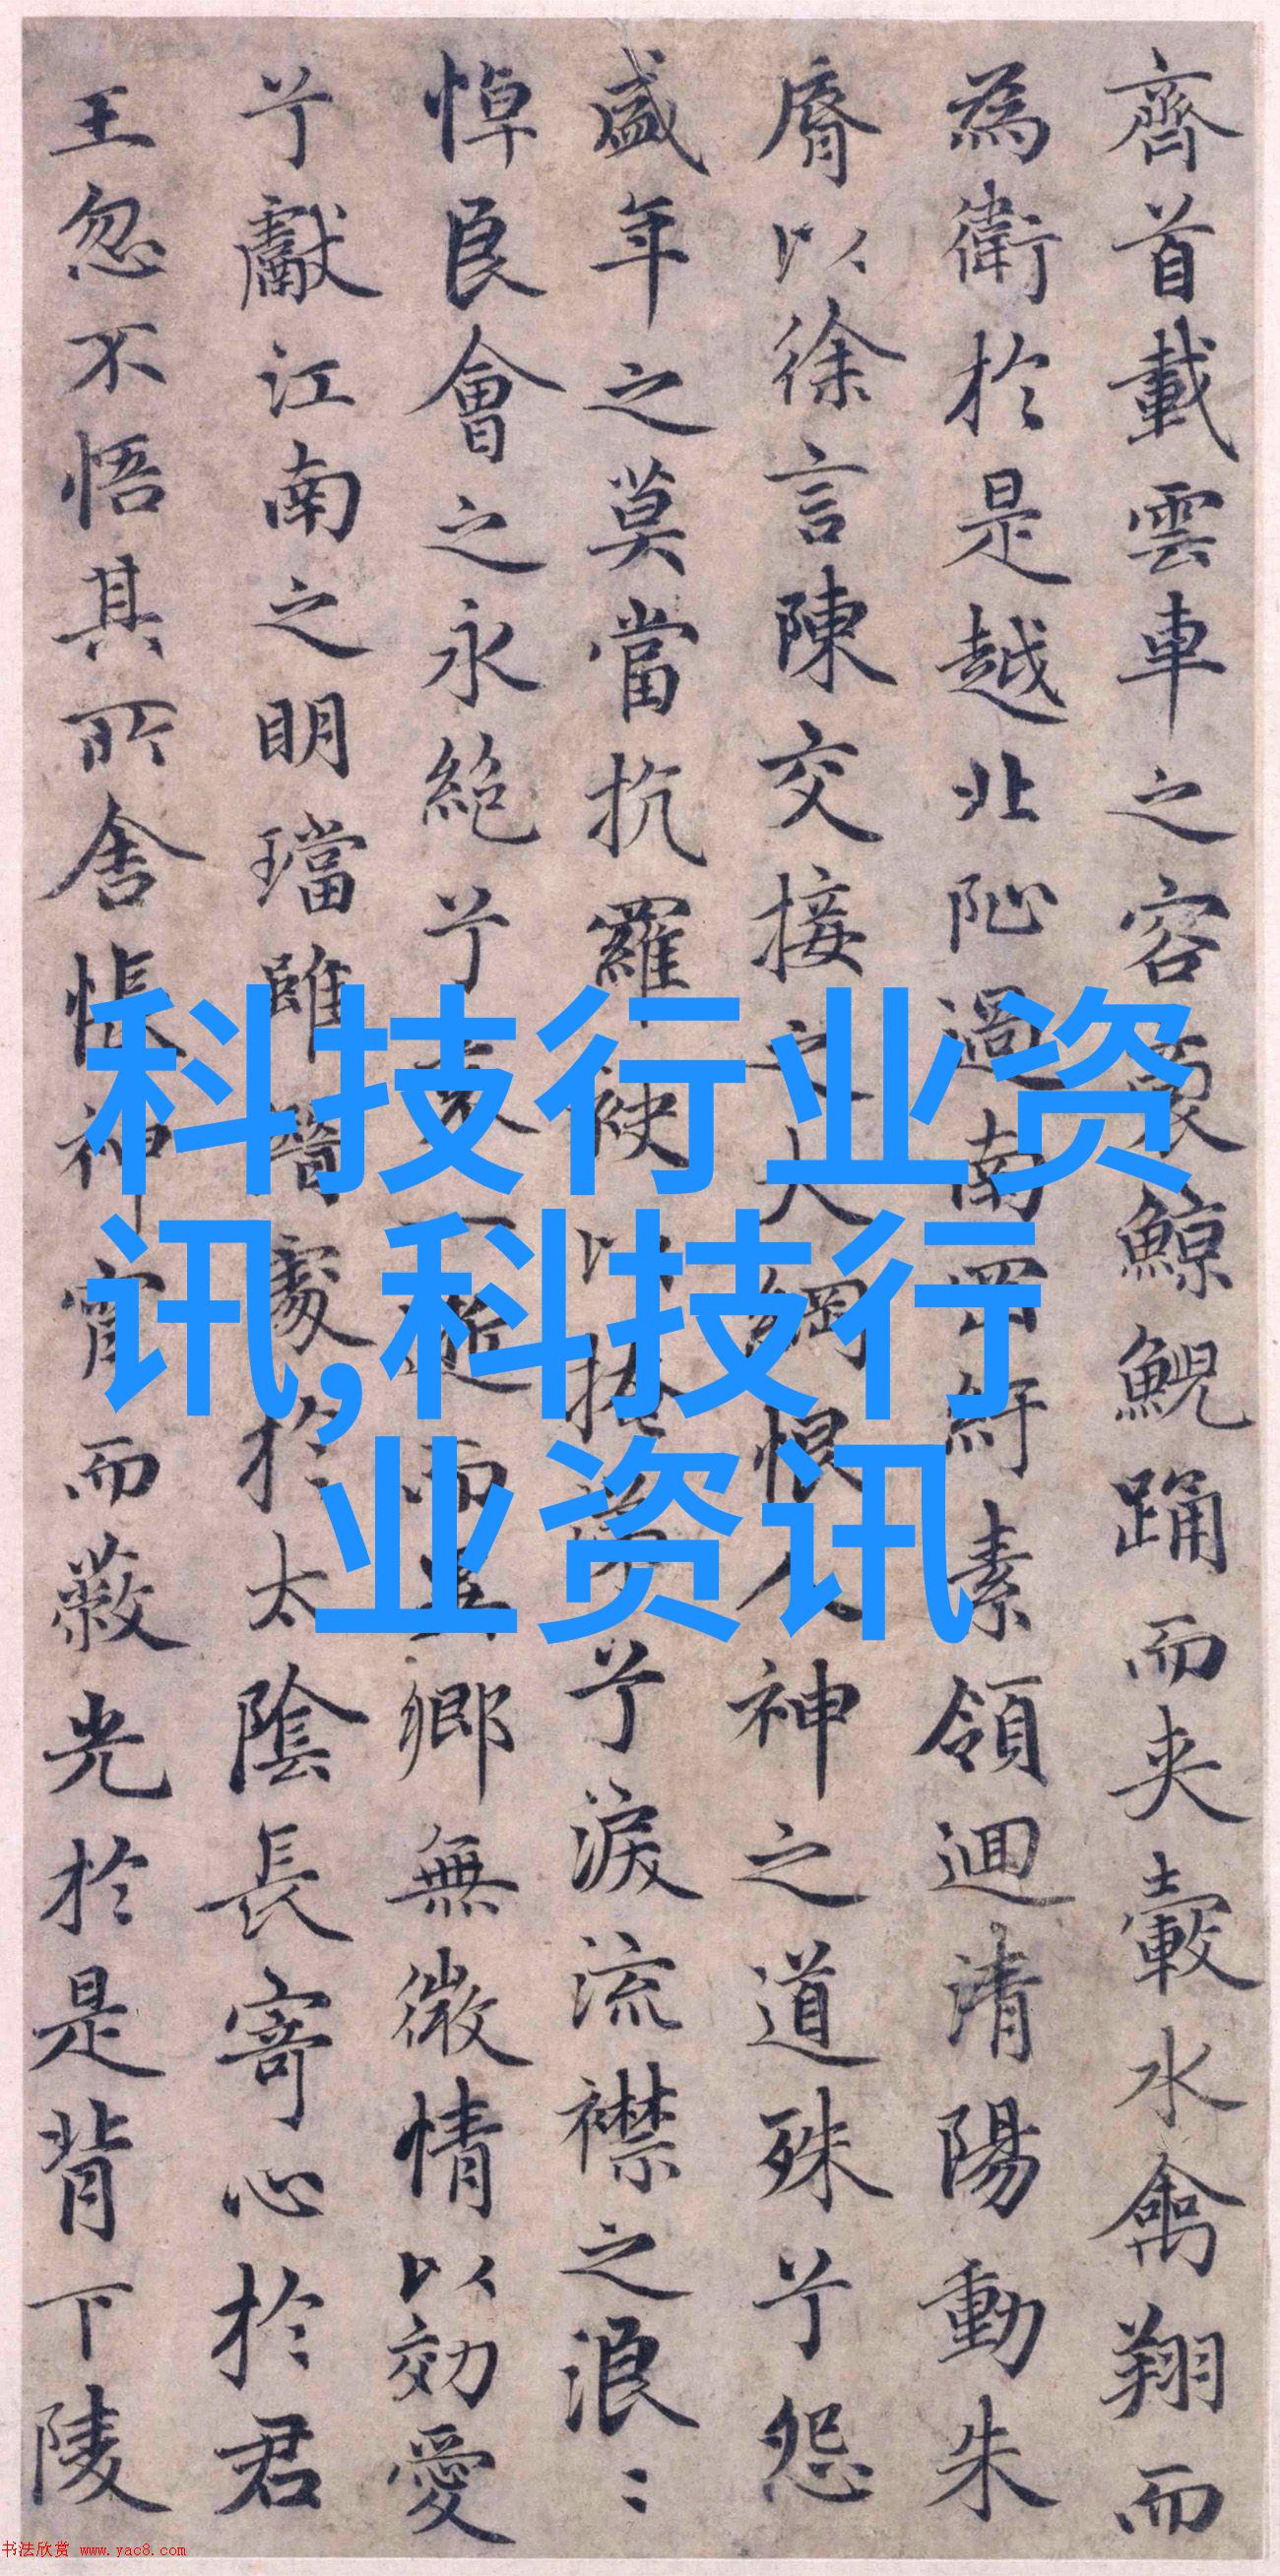 齊首載雲車之容裔鯨鯢踊而夾轂水禽翔而
為衛於是越北沚過南岡紆素領迴清陽動朱
脣以徐言陳交接之大綱恨人神之道殊兮怨
盛年之莫當抗羅袂以掩涕兮淚流襟之浪〻
悼良會之永絶兮哀一逝而異鄉無微情以効愛
兮獻江南之明璫雖潛處於太陰長寄心於君
王忽不悟其所舍悵神宵而蔽光於是背下陵
科技行业资
讯,科技行
业资讯
书法欣赏 www.yac8.com